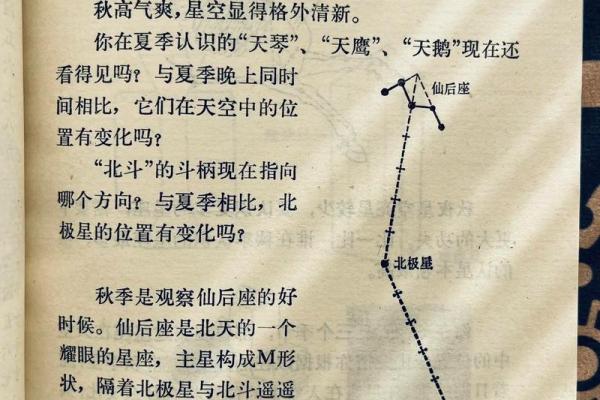 秋高气爽，星空显得格外清新。
你在夏季认识的“天琴”、“天鹰”、“天鹅”现在还
看得见吗？与夏季晚上同时
间相比，它们在天空中的位
置有变化吗？
“北斗”的斗柄现在指向
哪个方向？与夏季相比，北
极星的位置有变化吗？
秋季是观察仙后座的好
时候。仙后座是北天的一个
耀眼的星座，主星构成M形
状，隔着北极星与北斗遥遥
仙后座
北极星